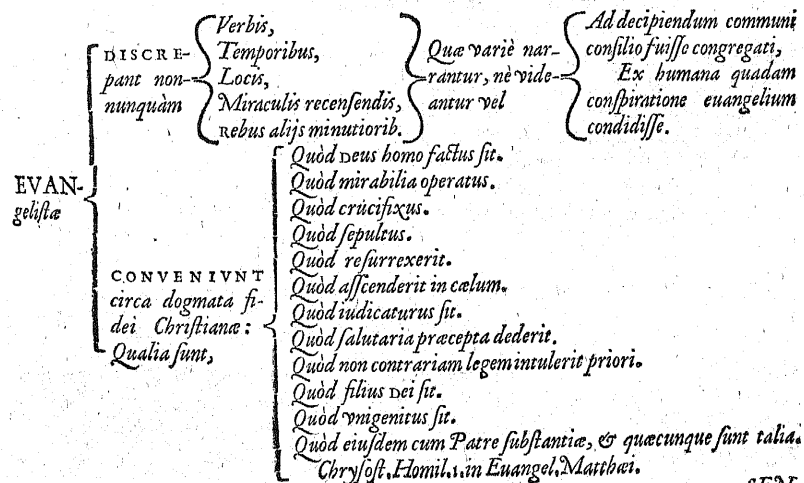 EVAN-
geliſtæ
DISCRE-
pant non-
nunquàm
Verbis,
Temporibus,
Locis,
Miraculis recenſendis,
Rebus alijs minutiorib.
Quæ variè nar-
rantur, nè vide-
antur vel
Ad decipiendum communi
conſilio fuiſſe congregati,
Ex humana quadam
conſpiratione euangelium
condidiſſe.
CONVENIVNT
circa dogmata fi-
dei Chriſtianæ:
Qualia ſunt,
Quòd Deus homo factus ſit.
Quòd mirabilia operatus.
Quòd crucifixus.
Quòd ſepultus.
Quòd reſurrexerit.
Quòd aſſcenderit in cælum.
Quòd iudicaturus ſit.
Quòd ſalutaria præcepta dederit.
Quòd non contrariam legem intulerit priori.
Quòd filius Dei ſit.
Quòd vnigenitus ſit.
Quòd eiuſdem cum Patre ſubſtantiæ, & quæcunque ſunt talia.
Chryſoſt. Homil. 1. in Euangel. Matthæi.